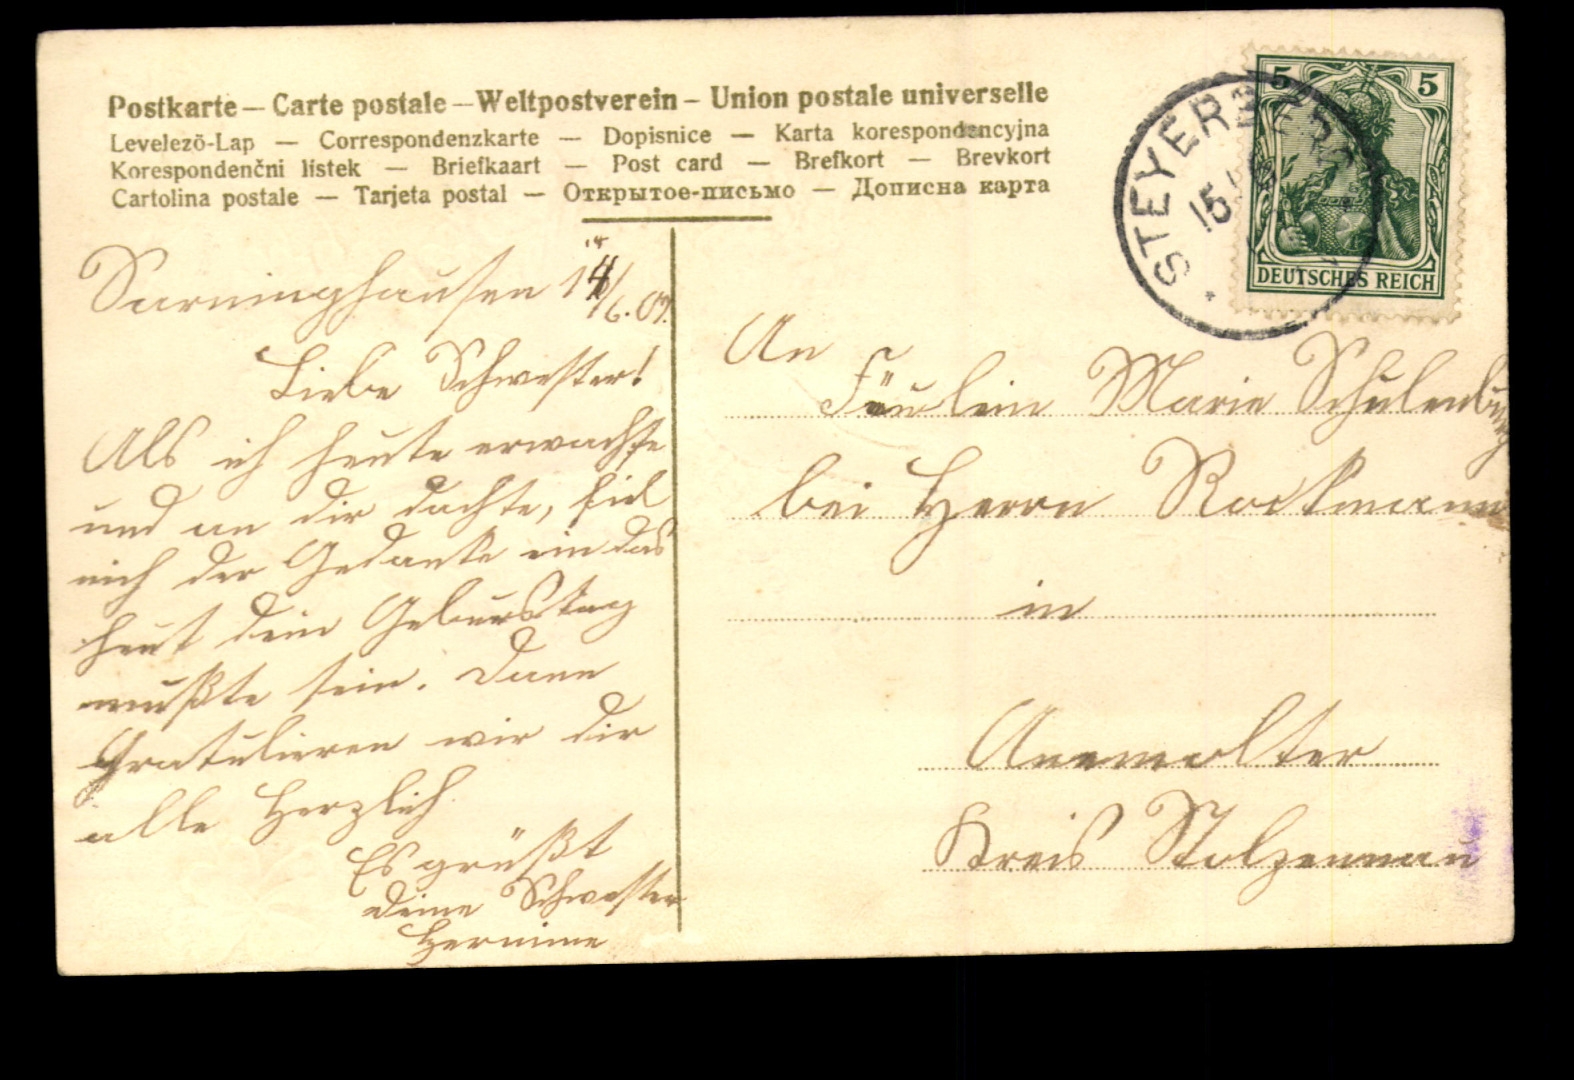 Postkarte — Carte postale — Weltpostverein — Union postale universelle
Levelezö-Lap — Correspondenzkarte — Dopisnice — Karta korespondencyjna
Korespondenční lístek — Briefkaart — Post card — Brefkort — Brevkort
Cartolina postale — Tarjeta postal — Открытое-письмо — Дописна карта
5 5
DEUTSCHES REICH
STEYERBERG
15
Sarninghausen 14/6.07.
Liebe Schwester!
Als ich heute erwachte
und an dir dachte, fiel
mich der Gedanke ein das
heut dein Geburstag
mußte sein. Dann
Gratulieren wir dir
alle Herzlich.
Es grüßt
deine Schwester
Hermine
An
Fäulein Marie Schulenburg
bei Herrn Rockmann
in
Anemolter
Kreis Stolzenau